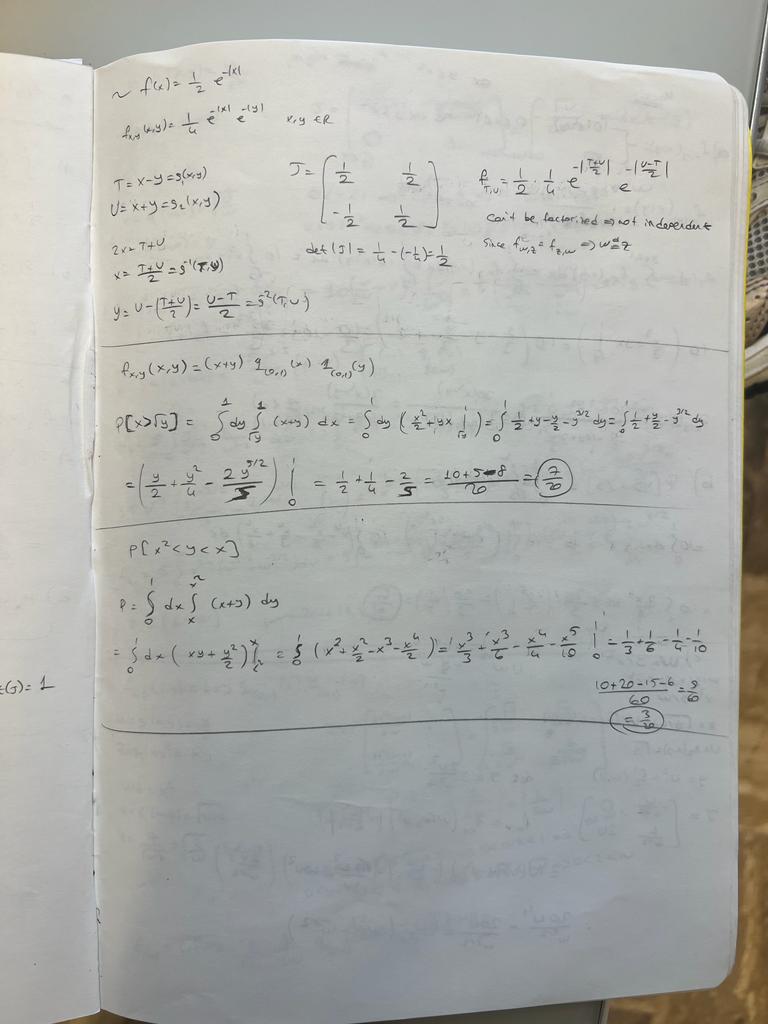 ~ f(x) = 1/2 e^{-|x|}
f_{x,y}(x,y) = 1/4 e^{-|x|} e^{-|y|}   x,y ∈ R
T = x-y = g_1(x,y)
U = x+y = g_2(x,y)
2x = T+U
x = (T+U)/2 = g^{-1}(T,U)
y = U - ((T+U)/2) = (U-T)/2 = g^{-2}(T,U)
J = [1/2 1/2
-1/2 1/2]
det|J| = 1/4 - (-1/4) = 1/2
f_{T,U} = 1/2 · 1/4 · e^{-|(T+U)/2|} e^{-|(U-T)/2|}
can't be factorized => not independent
Since f_{w,z} = f_{z,w} => w =^d z
f_{x,y}(x,y) = (x+y) 1_{(0,1)}(x) 1_{(0,1)}(y)
P[x>√y] = ∫_0^1 dy ∫_{√y}^1 (x+y) dx = ∫_0^1 dy (x²/2 + yx |_{√y}^1) = ∫_0^1 1/2 + y - y/2 - y^{3/2} dy = ∫_0^1 1/2 + y/2 - y^{3/2} dy
= (y/2 + y²/4 - 2y^{5/2}/5) |_0^1 = 1/2 + 1/4 - 2/5 = (10+5-8)/20 = 7/20
P[x² < y < x]
P = ∫_0^1 dx ∫_x^{x²} (x+y) dy
= ∫_0^1 dx (xy + y²/2)|_{x²}^x = ∫_0^1 (x² + x²/2 - x³ - x⁴/2) = x³/3 + x³/6 - x⁴/4 - x⁵/10 |_0^1 = 1/3 + 1/6 - 1/4 - 1/10
(10+20-15-6)/60 = 9/60
= 3/20
(G) = 1